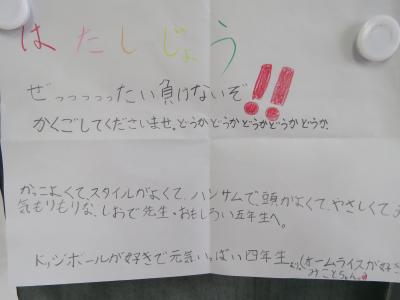 はたしじょう
ぜっっっっったい負けないぞ!!
かくごしてくださいませ。どうかどうかどうかどうかどうか
かっこよくて、スタイルがよくて、ハンサムで頭がよくて、やさしくて、
気もりもりな、しおで先生・おもしろい五年生へ。
ドッジボールが好きで元気いっぱい四年生より(ホームライスが好き
みこともゃん。